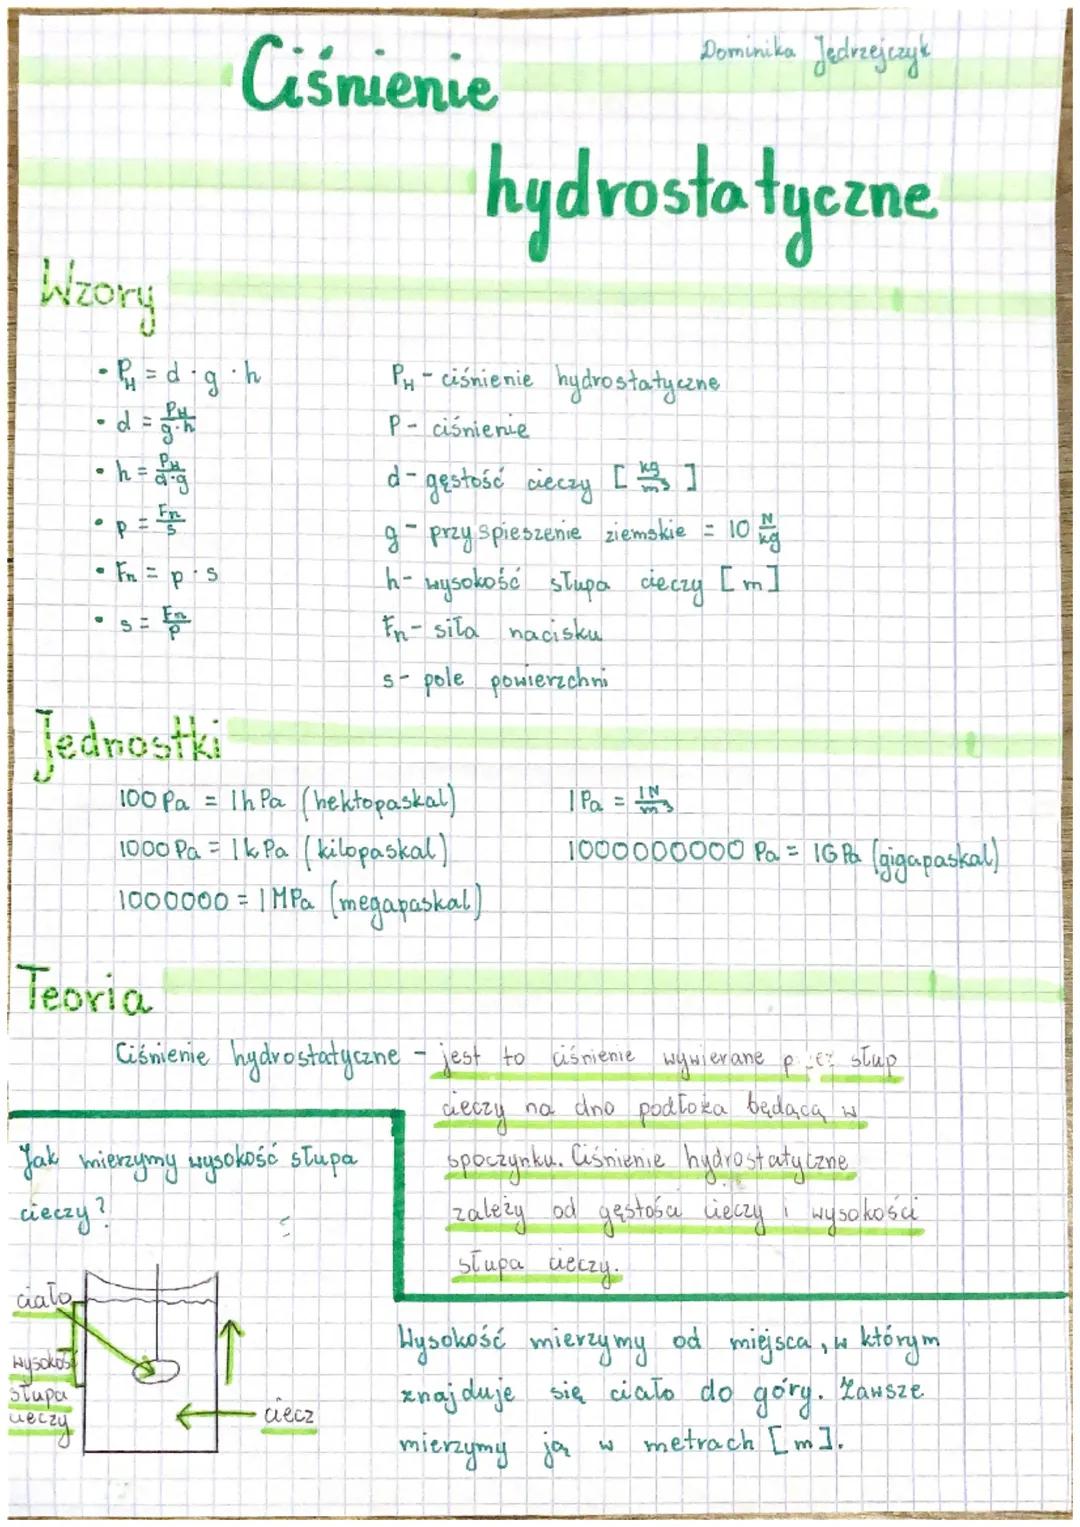 Dominika Jędrzejczyk
Ciśnienie
hydrostatyczne
Wzory
• P_H = d · g · h
• d = P_H / g·h
• h = P_H / d·g
• p = Fn / s
• Fn = p · s
• s = Fn / p
P_H - ciśnienie hydrostatyczne
P - ciśnienie
d - gęstość cieczy [kg/m³]
g - przyspieszenie ziemskie = 10 N/kg
h - wysokość słupa cieczy [m]
Fn - siła nacisku
s - pole powierzchni
Jednostki
100 Pa = 1hPa (hektopaskal)
1000 Pa = 1kPa (kilopaskal)
1000000 = 1MPa (megapaskal)
1Pa = 1N/m³
1000000000 Pa = 1GPa (gigapaskal)
Teoria
Ciśnienie hydrostatyczne - jest to ciśnienie wywierane przez słup
cieczy na dno podłoża będącą w
spoczynku. Ciśnienie hydrostatyczne
zależy od gęstości cieczy i wysokości
słupa cieczy.
Jak mierzymy wysokość słupa
cieczy?
ciało
wysokość
słupa
cieczy
ciecz
Wysokość mierzymy od miejsca, w którym
znajduje się ciało do góry. Zawsze
mierzymy ją w metrach [m].